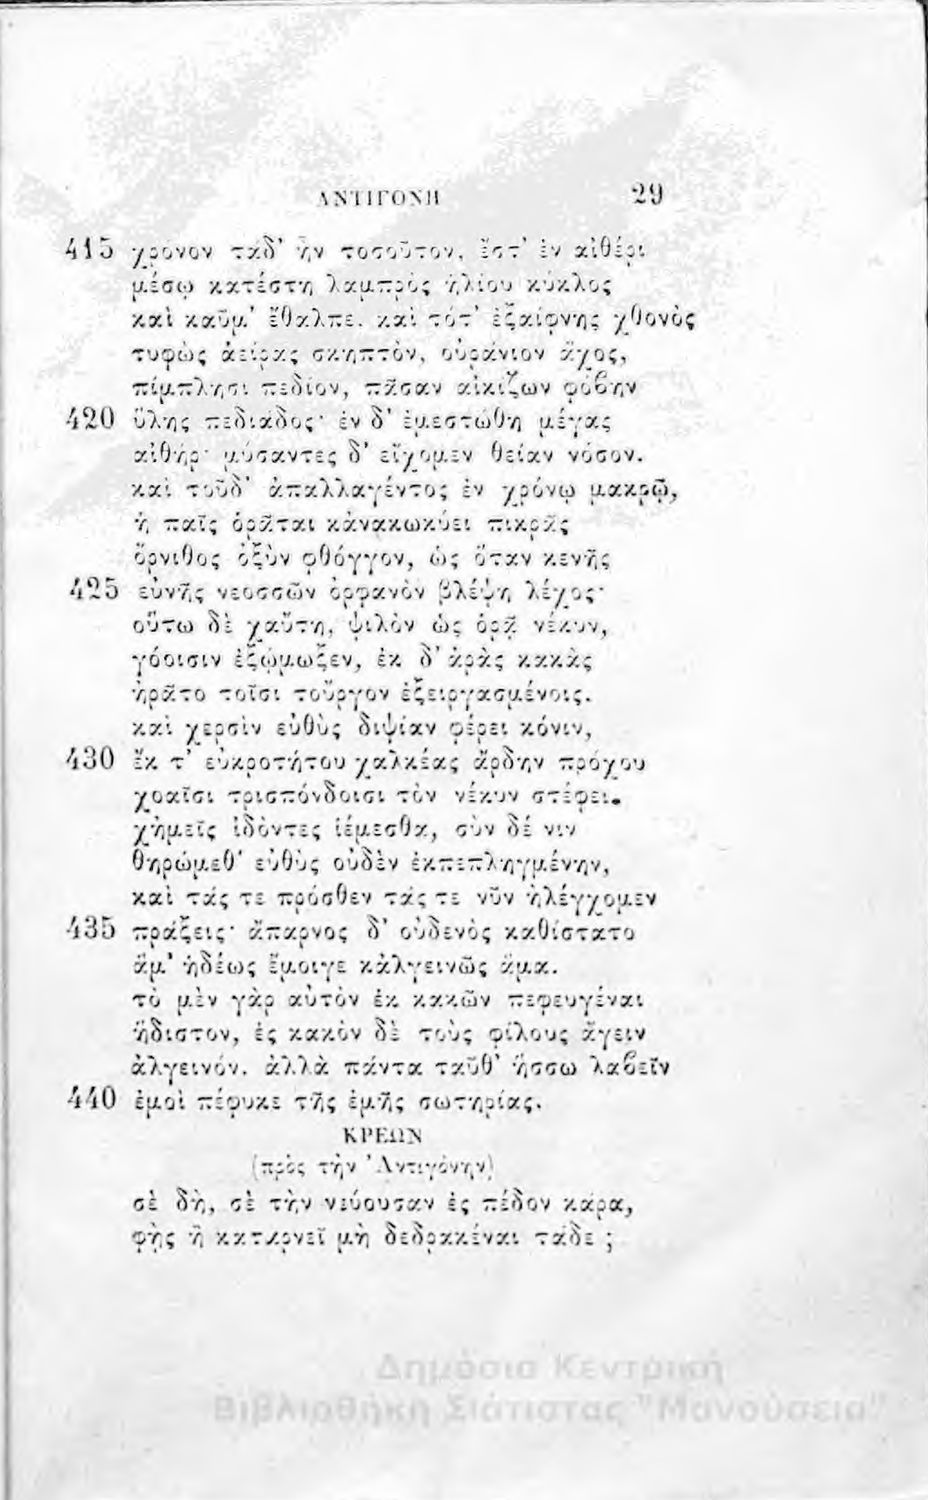 ΑΝΤΙΓΟΝΗ 29
415 χρόνον τάδ’ ἦν τοσοῦτον, ἔστ’ ἐν αἰθέρι
μέσῳ κατέστη λαμπρὸς ἡλίου κύκλος
καὶ καῦμ’ ἔθαλπε. καὶ τότ’ ἐξαίφνης χθονὸς
τυφὼς ἀείρας σκηπτὸν, οὐράνιον ἄχος,
πίμπλησι πεδίον, πᾶσαν αἰκίζων φόβην
420 ὕλης πεδιάδος· ἐν δ’ ἐμεστώθη μέγας
αἰθήρ· μύσαντες δ’ εἴχομεν θείαν νόσον.
καὶ τοῦδ’ ἀπαλλαγέντος ἐν χρόνῳ μακρῷ,
ἡ παῖς ὁρᾶται κἀνακωκύει πικρᾶς
ὄρνιθος ὀξὺν φθόγγον, ὡς ὅταν κενῆς
425 εὐνῆς νεοσσῶν ὀρφανὸν βλέψῃ λέχος·
οὕτω δὲ χαὕτη, ψιλὸν ὡς ὁρᾷ νέκυν,
γόοισιν ἐξῴμωξεν, ἐκ δ’ ἀρὰς κακὰς
ἠρᾶτο τοῖσι τοὔργον ἐξειργασμένοις.
καὶ χερσὶν εὐθὺς διψίαν φέρει κόνιν,
430 ἔκ τ’ εὐκροτήτου χαλκέας ἄρδην πρόχου
χοαῖσι τρισπόνδοισι τὸν νέκυν στέφει.
χἠμεῖς ἰδόντες ἱέμεσθα, σὺν δέ νιν
θηρώμεθ’ εὐθὺς οὐδὲν ἐκπεπληγμένην,
καὶ τάς τε πρόσθεν τάς τε νῦν ἠλέγχομεν
435 πράξεις· ἄπαρνος δ’ οὐδενὸς καθίστατο
ἅμ’ ἡδέως ἔμοιγε κἀλγεινῶς ἅμα.
τὸ μὲν γὰρ αὐτὸν ἐκ κακῶν πεφευγέναι
ἥδιστον, ἐς κακὸν δὲ τοὺς φίλους ἄγειν
ἀλγεινόν. ἀλλὰ πάντα ταῦθ’ ἥσσω λαβεῖν
440 ἐμοὶ πέφυκε τῆς ἐμῆς σωτηρίας.
ΚΡΕΩΝ
(πρὸς τὴν Ἀντιγόνην)
σὲ δὴ, σὲ τὴν νεύουσαν ἐς πέδον κάρα,
φὴς ἢ καταρνεῖ μὴ δεδρακέναι τάδε ;
Δημόσια Κεντρική
Βιβλιοθήκη Σιάτιστας "Μανούσεια"